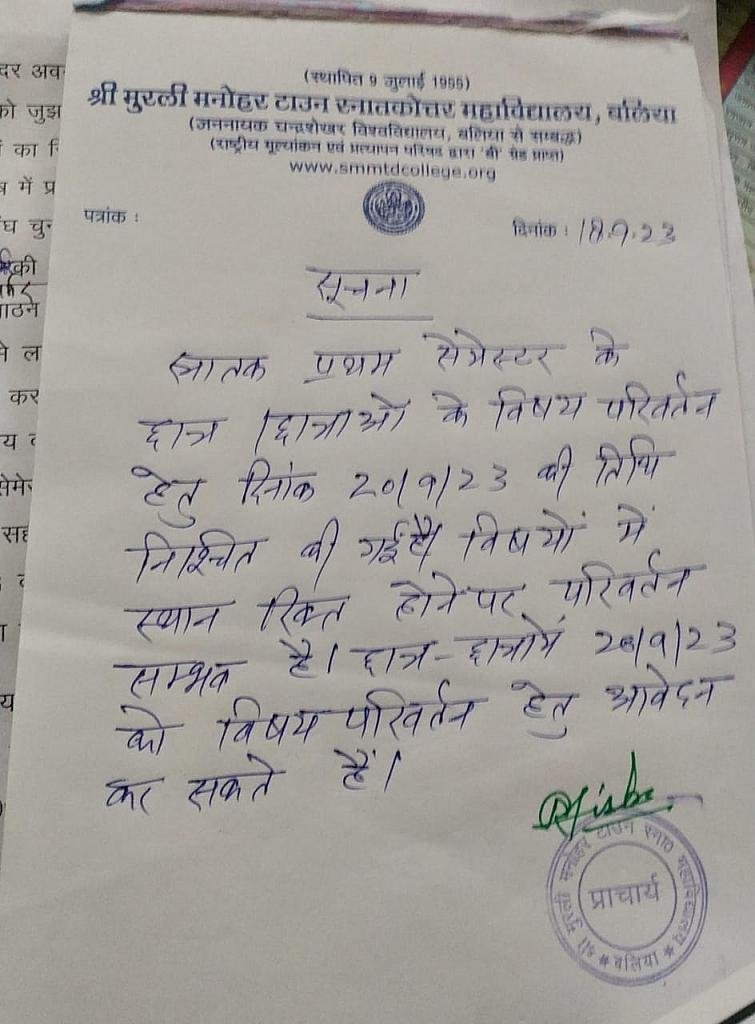 (स्थापित 9 जुलाई 1955)
श्री मुरली मनोहर टाउन स्नातकोत्तर महाविद्यालय, बलिया
(जननायक चन्द्रशेखर विश्वविद्यालय, बलिया से सम्बद्ध)
(राष्ट्रीय मूल्यांकन एवं प्रत्यापन परिषद द्वारा 'बी' ग्रेड प्राप्त)
www.smmtdcollege.org
पत्रांक :
दिनांक : 18.9.23
सूचना
स्नातक प्रथम सेमेस्टर के
छात्र / छात्राओं के विषय परिवर्तन
हेतु दिनांक 20/9/23 की तिथि
निश्चित की गई है। विषयों में
स्थान रिक्त होने पर परिवर्तन
सम्भव है। छात्र-छात्रायें 20/9/23
को विषय परिवर्तन हेतु आवेदन
कर सकते हैं।
श्री मुरली मनोहर टाउन स्ना० महाविद्यालय
प्राचार्य
* बलिया *
दर अव
को जुझ
का
में प्र
घ चु
की
ाठन
ल
कर
य
सेमे
सह
य